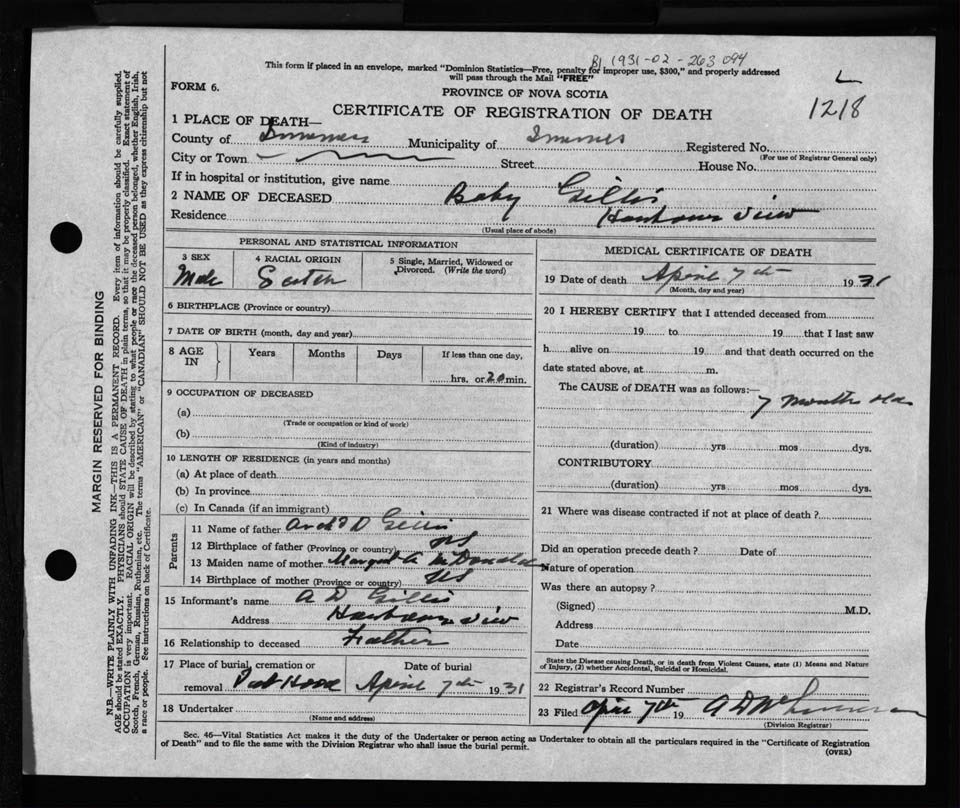 B1 1931-02-263094
This form if placed in an envelope, marked "Dominion Statistics—Free, penalty for improper use, $300," and properly addressed
will pass through the Mail "FREE"
FORM 6.
PROVINCE OF NOVA SCOTIA
1218
CERTIFICATE OF REGISTRATION OF DEATH
1 PLACE OF DEATH—
County of Inverness Municipality of Inverness Registered No.
(For use of Registrar General only)
City or Town Street House No.
If in hospital or institution, give name
2 NAME OF DECEASED Baby Gillis
Residence Harbour View
(Usual place of abode)
PERSONAL AND STATISTICAL INFORMATION
3 SEX 4 RACIAL ORIGIN 5 Single, Married, Widowed or
Divorced. (Write the word)
Male Scotch
6 BIRTHPLACE (Province or country)
7 DATE OF BIRTH (month, day and year)
8 AGE IN Years Months Days If less than one day,
hrs. or 20 min.
9 OCCUPATION OF DECEASED
(a)
(Trade or occupation or kind of work)
(b)
(Kind of industry)
10 LENGTH OF RESIDENCE (in years and months)
(a) At place of death
(b) In province
(c) In Canada (if an immigrant)
Parents
11 Name of father Arch D Gillis
12 Birthplace of father (Province or country) NS
13 Maiden name of mother Margaret A McDonald
14 Birthplace of mother (Province or country) NS
15 Informant's name A D Gillis
Address Harbour View
16 Relationship to deceased Father
17 Place of burial, cremation or Date of burial
removal Port Hood April 7th 1931
18 Undertaker
(Name and address)
MEDICAL CERTIFICATE OF DEATH
19 Date of death April 7th 1931
(Month, day and year)
20 I HEREBY CERTIFY that I attended deceased from
19 to 19 that I last saw
h alive on 19 and that death occurred on the
date stated above, at m.
The CAUSE of DEATH was as follows:—
7 months old
(duration) yrs mos dys.
CONTRIBUTORY
(duration) yrs mos dys.
21 Where was disease contracted if not at place of death?
Did an operation precede death? Date of
Nature of operation
Was there an autopsy?
(Signed) M.D.
Address
Date
State the Disease causing Death, or in death from Violent Causes, state (1) Means and Nature
of Injury, (2) whether Accidental, Suicidal or Homicidal.
22 Registrar's Record Number
23 Filed April 7th 19 A D
(Division Registrar)
Sec. 46—Vital Statistics Act makes it the duty of the Undertaker or person acting as Undertaker to obtain all the particulars required in the "Certificate of Registration
of Death" and to file the same with the Division Registrar who shall issue the burial permit.
(OVER)
MARGIN RESERVED FOR BINDING
N.B.—WRITE PLAINLY WITH UNFADING INK—THIS IS A PERMANENT RECORD. Every item of information should be carefully supplied.
AGE should be stated EXACTLY. PHYSICIANS should STATE CAUSE OF DEATH in plain terms, so that it may be properly classified. Exact statement of
OCCUPATION is very important. RACIAL ORIGIN will be described by stating to what people or race the deceased person belonged, whether English, Irish,
Scotch, French, German, Russian, Ruthenian, etc. The terms "AMERICAN" or "CANADIAN" SHOULD NOT BE USED as they express citizenship but not
a race or people. See instructions on back of Certificate.